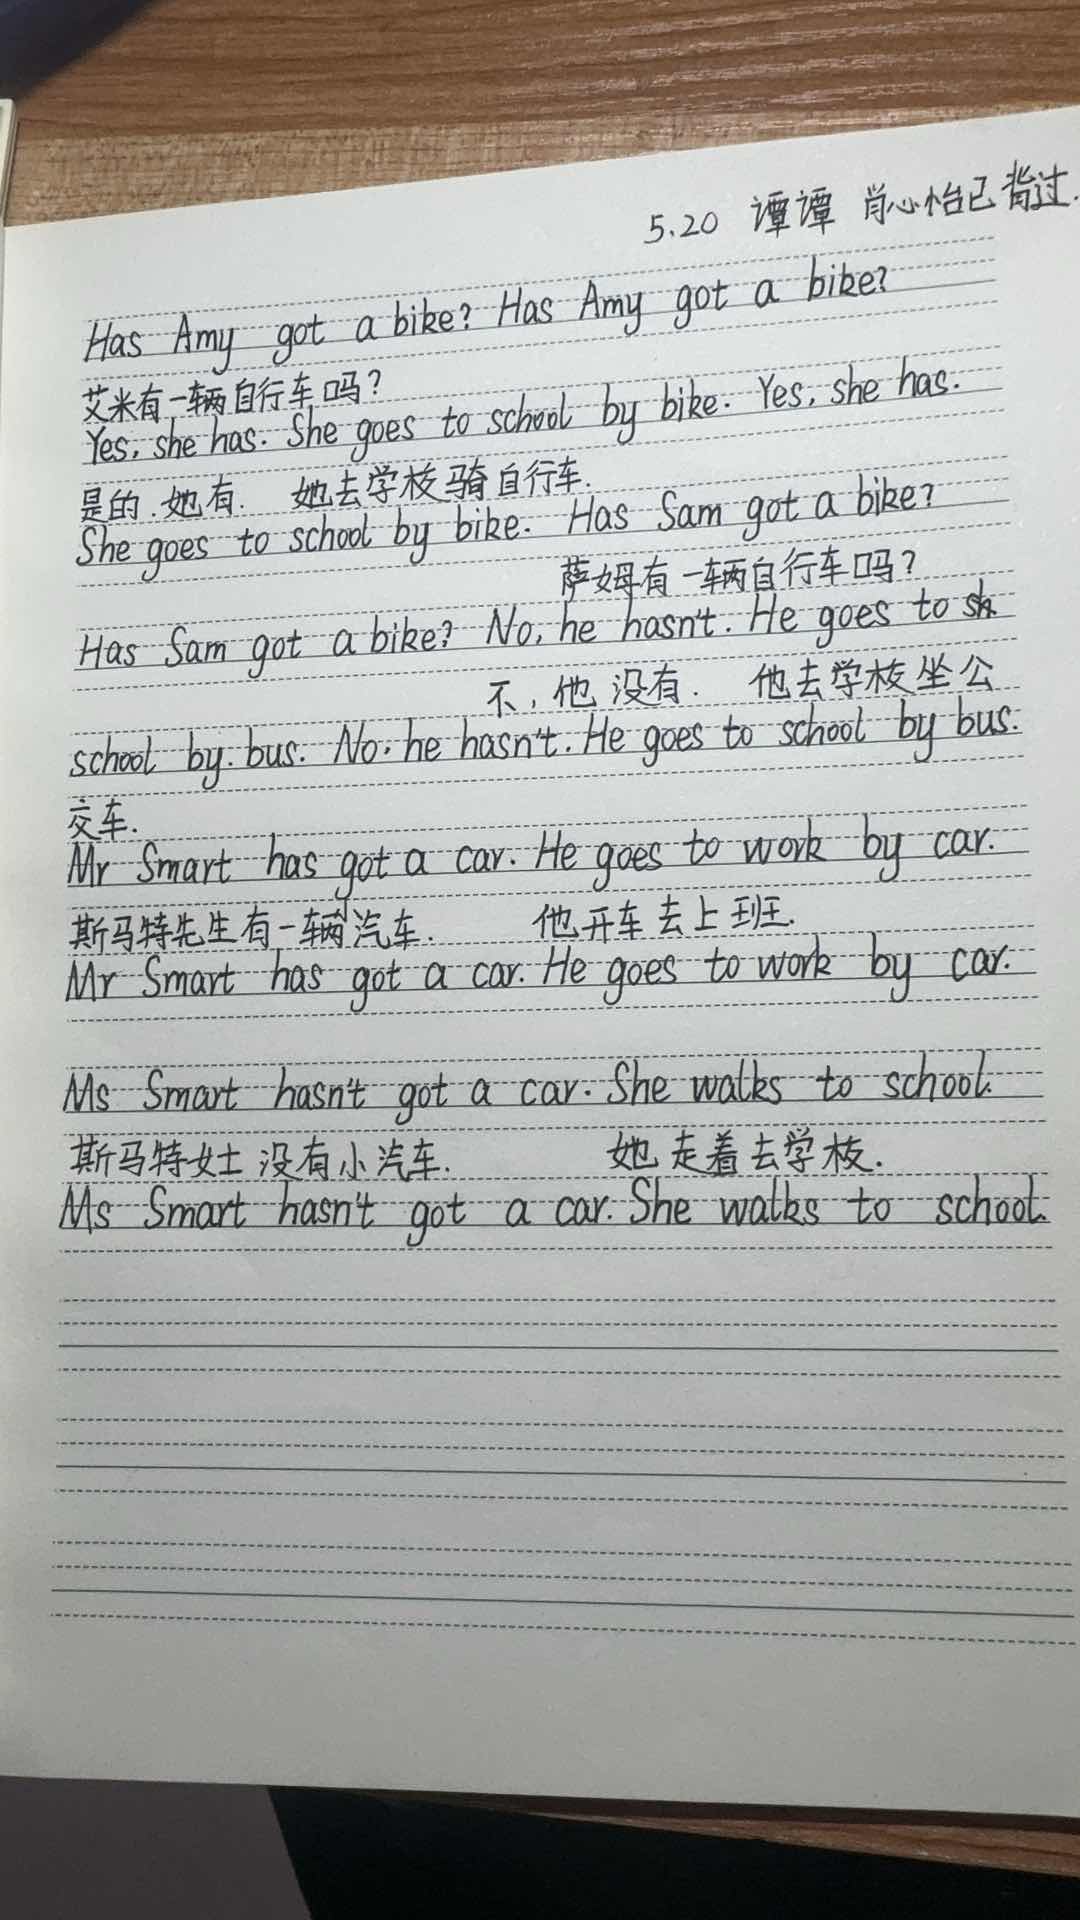 5.20 谭谭 肖心怡已背过.
Has Amy got a bike? Has Amy got a bike?
艾米有一辆自行车吗?
Yes, she has. She goes to school by bike. Yes, she has.
是的.她有. 她去学校骑自行车.
She goes to school by bike. Has Sam got a bike?
萨姆有一辆自行车吗?
Has Sam got a bike? No, he hasn't. He goes to
不,他没有. 他去学校坐公
school by. bus. No. he hasn't. He goes to school by bus.
交车.
Mr Smart has got a car. He goes to work by car.
斯马特先生有一辆汽车. 他开车去上班.
Mr Smart has got a car. He goes to work by car.
Ms Smart hasn't got a car. She walks to school.
斯马特女士没有小汽车. 她走着去学校.
Ms Smart hasn't got a car. She walks to school.